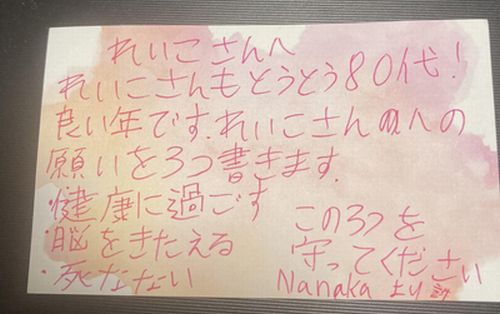 れいこさんへ
れいこさんもとうとう80代!
良い年です.れいこさんへの
願いを3つ書きます.
・健康に過ごす
・脳をきたえる
・死なない
この3つを
守ってください
Nanaka より